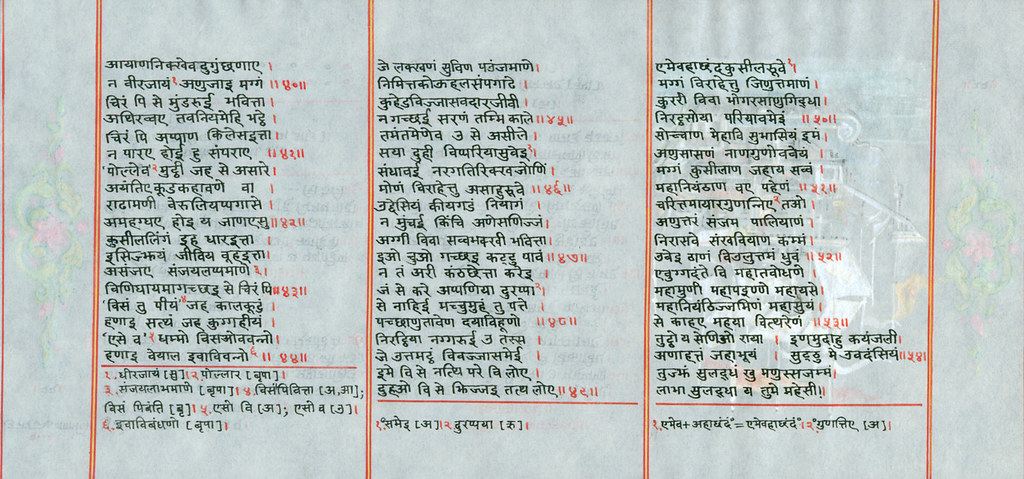 आयाणनिक्खेवदुगुंछणाए ।
न वीरजायं१ अणुजाइ मग्गं ॥४०॥
चिरं पि से मुंडरुई भवित्ता ।
अथिरव्वए तवनियमेहि भट्ठे ।
चिरं पि अप्पाण किलेसइत्ता ।
न पारए होई हु संपराए ॥४१॥
'पोल्लेव'२ मुट्ठी जह से असारे ।
अयंतिए कूडकहावणे वा ।
राढामणी वेरुलियप्पगासे ।
अमहग्घए होइ य जाणएसु॥४२॥
कुसीललिंगं इह धारइत्ता ।
इसिज्झयं जीविय वूहइत्ता।
असंजए संजयलप्पमाणे३।
विणिघायमागच्छइ से चिरं पि॥४३॥
'विसं तु पीयं'४ जह कालकूडं ।
हणाइ सत्थं जह कुग्गहीयं ।
'एसे व'५ धम्मो विसओववन्नो ।
हणाइ वेयाल इवाविवन्नो६ ॥४४॥
१. धीरजायं [सु]।२. पोल्लार [बृपा] ।
३. संजयलाभमाणे [बृपा]। ४. विसंपिवित्ता [अ,आ];
विसं पिबंति [बृ]। ५. एसो वि [अ]; एसो व [उ]।
६. इवाविबंधणो [बृपा]।
जे लक्खणं सुविण पउंजमाणे।
निमित्तकोऊहलसंपगाढे ।
कुहेडविज्जासवदारजीवी ।
न गच्छई सरणं तम्मि काले॥४५॥
तमंतमेणेव उ से असीले ।
सया दुही विप्परियासुवेइ१।
संधावई नरगतिरिक्खजोणिं ।
मोणं विराहेत्तु असाहुरूवे॥४६॥
उद्देसियं कीयगडं नियागं ।
न मुंचई किंचि अणेसणिज्जं।
अग्गी विवा सव्वभक्खी भवित्ता।
इओ चुओ गच्छइ कट्टु पावं॥४७॥
न तं अरी कंठछेत्ता करेइ ।
जं से करे अप्पणिया दुरप्पा२।
से नाहिई मच्चुमुहं तु पत्ते ।
पच्छाणुतावेण दयाविहूणो ॥४८॥
निरट्ठिया नग्गरुई उ तस्स ।
जे उत्तमट्ठं विवज्जासमेई ।
इमे वि से नत्थि परे वि लोए ।
दुहओ वि से झिज्जइ तत्थ लोए॥४९॥
१.°समेइ [अ]।२. दुरप्पया [ऋ] ।
एमेवहाछंदकुसीलरूवे१।
मग्गं विराहेत्तु जिणुत्तमाणं।
कुररी विवा भोगरसाणुगिद्धा ।
निरट्ठसोया परियावमेई ॥५०॥
सोच्चाण मेहावि सुभासियं इमं।
अणुसासणं नाणगुणोववेयं ।
मग्गं कुसीलाण जहाय सव्वं ।
महानियंठाण वए पहेणं ॥५१॥
चरित्तमायारगुणन्निए२ तओ ।
अणुत्तरं संजम पालियाणं ।
निरासवे संखवियाण कम्मं।
उवेइ ठाणं विउलुत्तमं धुवं ॥५२॥
एवुग्गदंते वि महातवोधणे ।
महामुणी महापइण्णे महायसे।
महानियंठिज्जमिणं महासुयं।
से काहए महया वित्थरेणं ॥५३॥
तुट्ठो य सेणिओ राया । इणमुदाहु कयंजली।
अणाहत्तं जहाभूयं । सुट्ठु मे उवदंसियं॥५४॥
तुज्झं सुलद्धं खु मणुस्सजम्मं।
लाभा सुलद्धा य तुमे महेसी।
१. एमेव+अहाछंदं°=एमेवहाछंदं°।२.°गुणत्तिए [अ]।